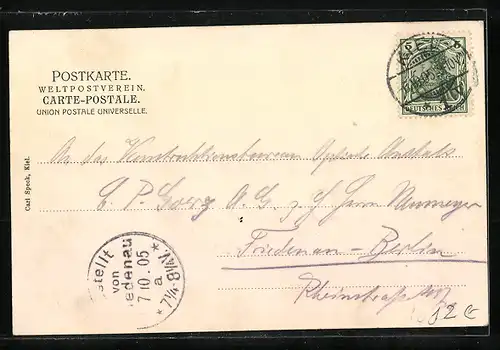 POSTKARTE.
WELTPOSTVEREIN.
CARTE-POSTALE.
UNION POSTALE UNIVERSELLE.
KIEL
5 5
DEUTSCHES REICH
An das Konstruktionsbureau Optische Anstalt
C. P. Goerz A. G. z. H. Herrn Neumeyer
Friedenau-Berlin
Rheinstraße
Carl Speck, Kiel.
stellt
von
edenau
7 10. 05
a
* 7¼-8¼V. *